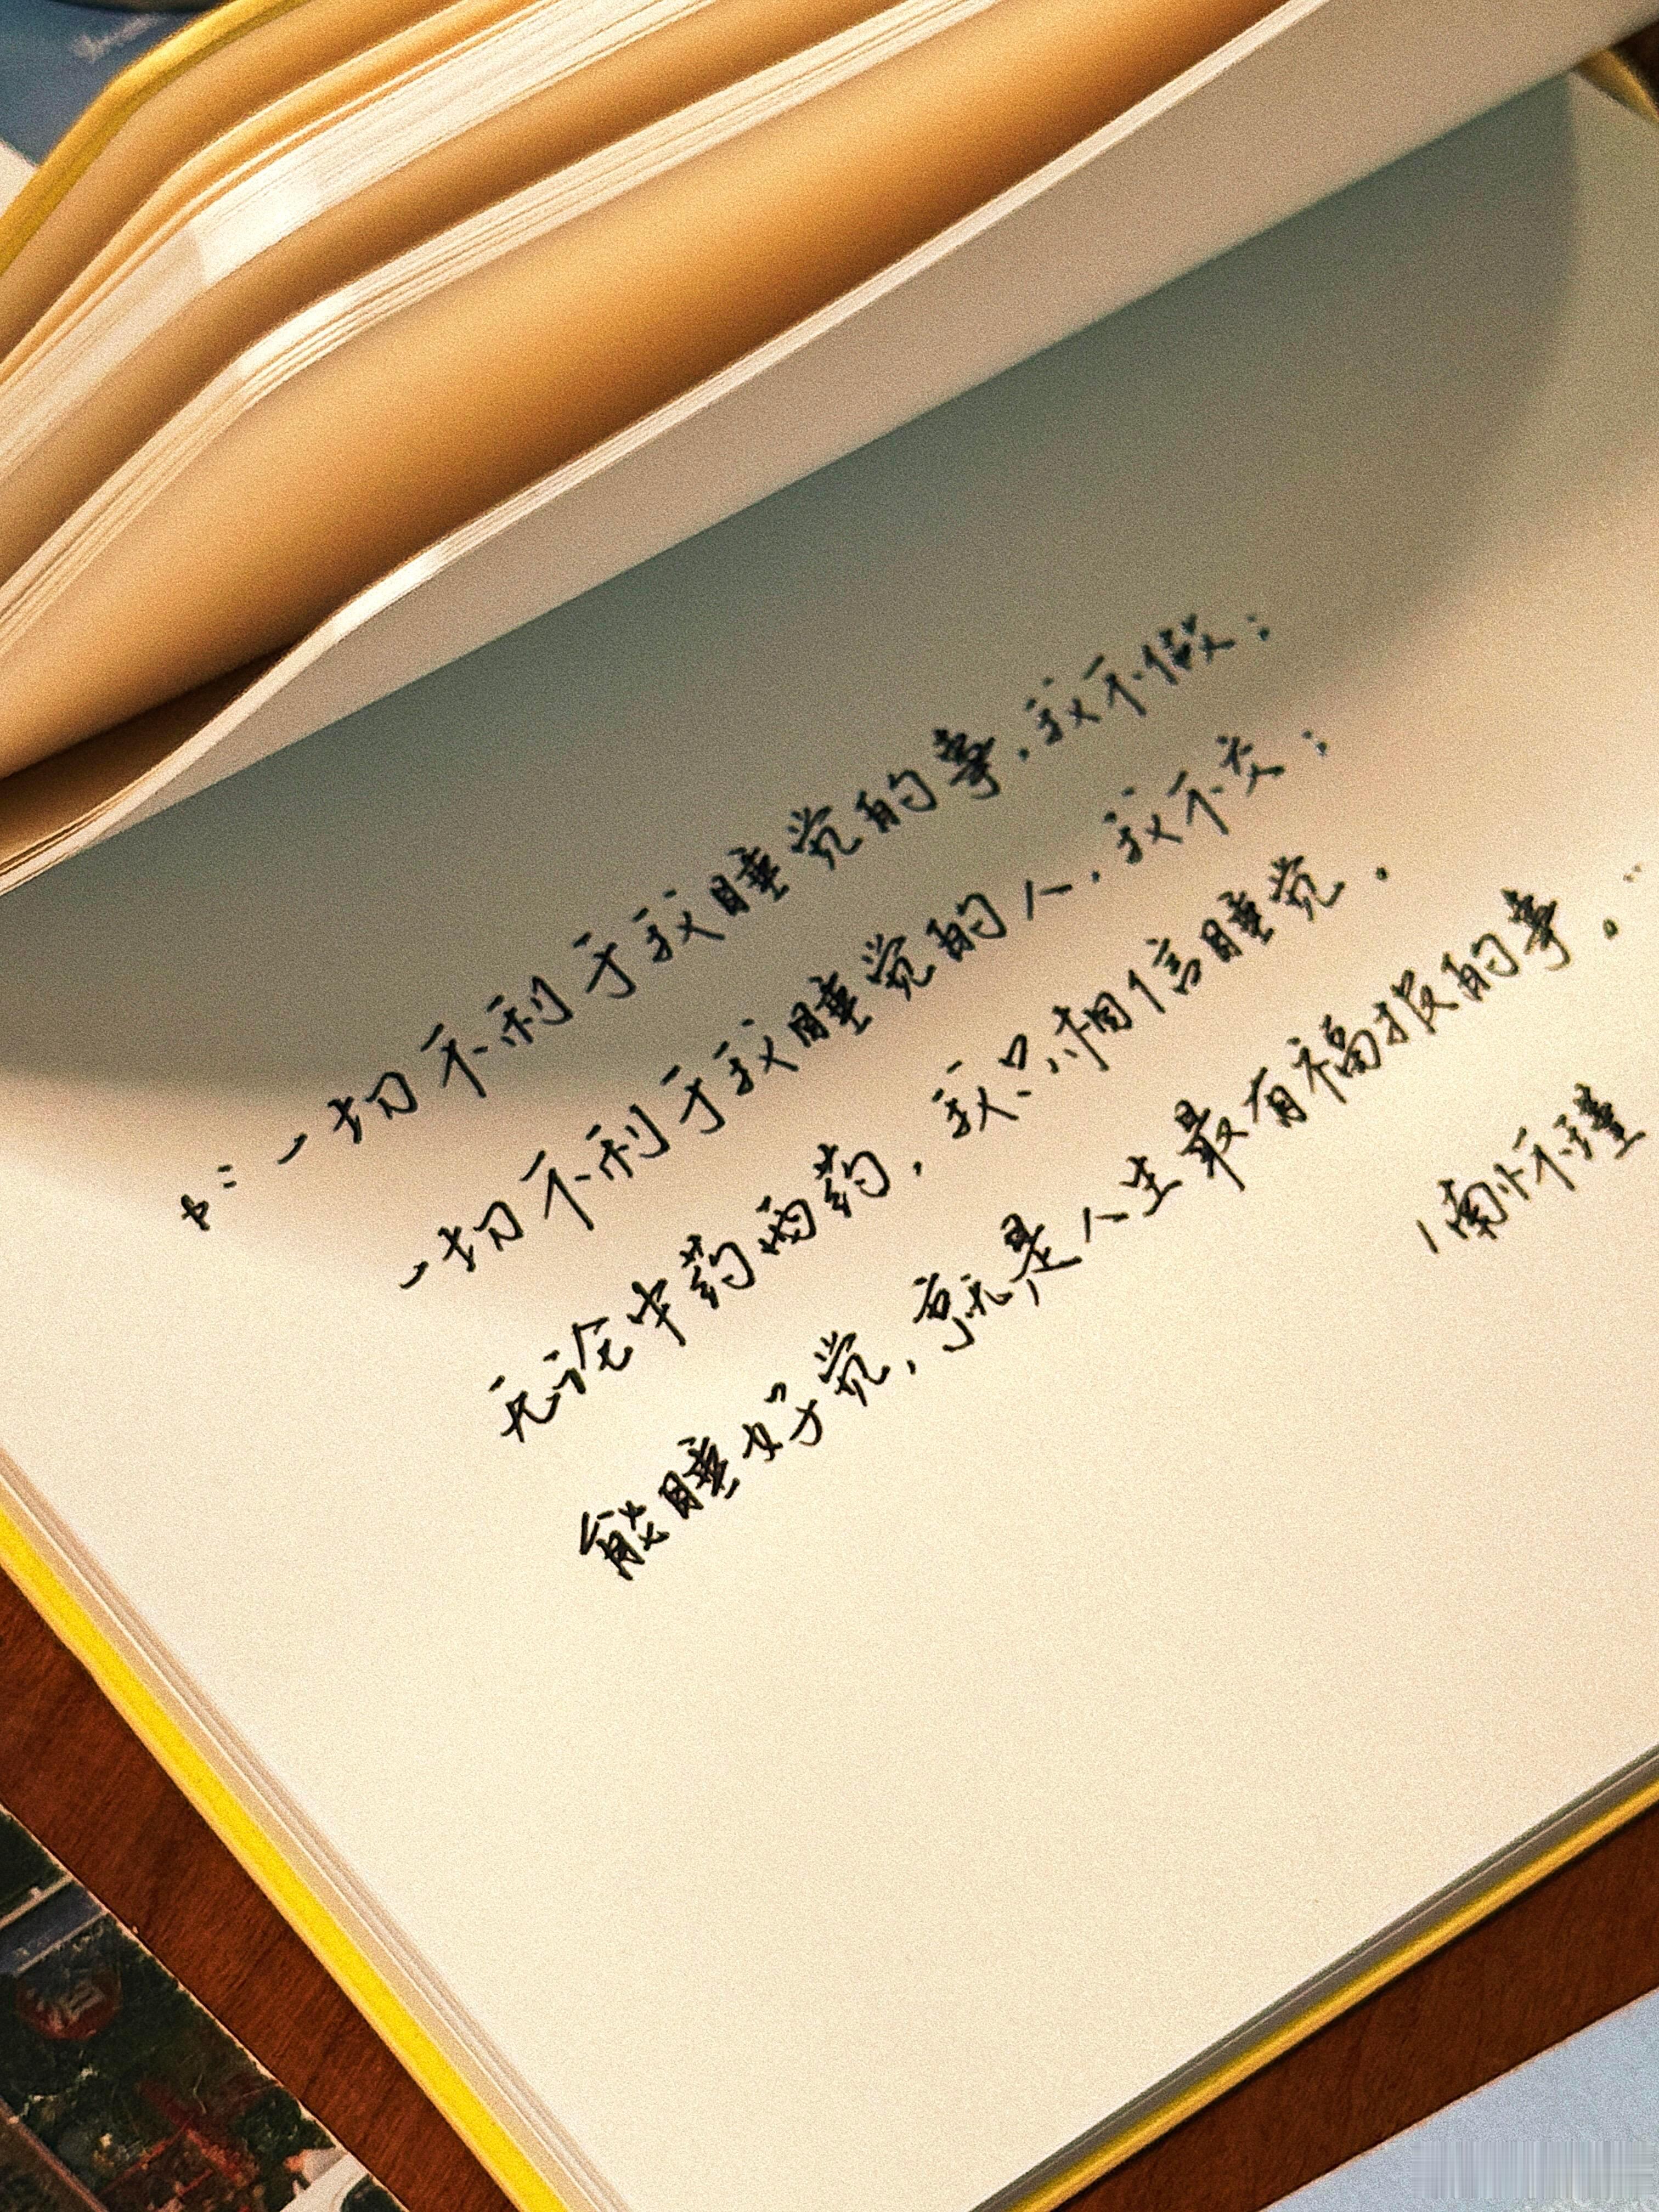 一切不利于我睡觉的事,我不做;
一切不利于我睡觉的人,我不交;
无论中药西药,我只相信睡觉.
能睡好觉,就是人生最有福报的事。"
/南怀瑾